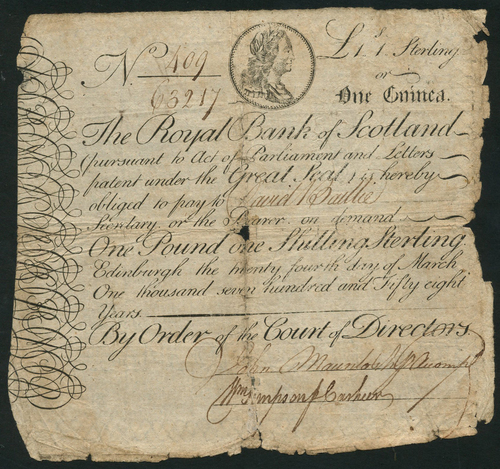 No 409
63217
£1,,1 Sterling
or
One Guinea.
The Royal Bank of Scotland
Pursuant to Act of Parliament and Letters
patent under the Great Seal is hereby
obliged to pay to David Baillie
Secretary or the Bearer on demand
One Pound one Shilling Sterling
Edinburgh the twenty fourth day of March
One thousand seven hundred and Fifty eight
Years.
By Order of the Court of Directors
John
Wm Simpson Cashier